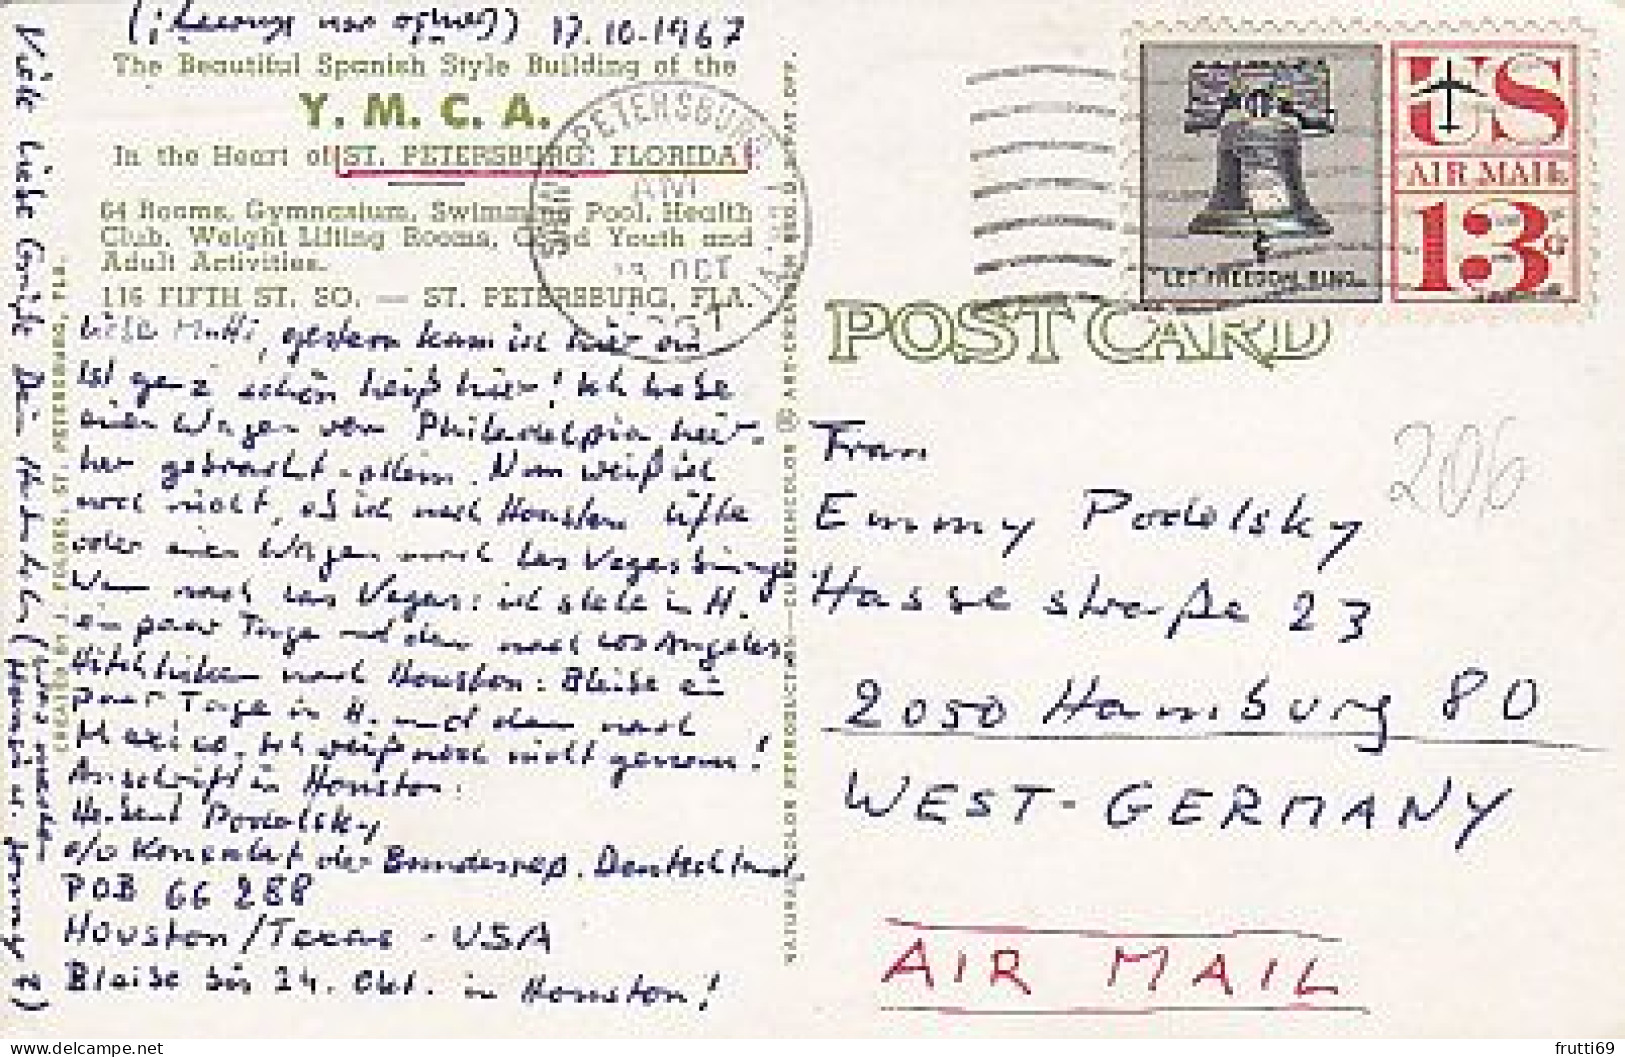 17.10.1967
The Beautiful Spanish Style Building of the
Y. M. C. A.
In the Heart of ST. PETERSBURG, FLORIDA
64 Rooms, Gymnasium, Swimming Pool, Health
Club, Weight Lifting Rooms, Good Youth and
Adult Activities.
116 FIFTH ST. SO. — ST. PETERSBURG, FLA.
Liebe Mutti, gestern kam ich hier an
Ist ganz schön heiß hier! Ich habe
einen Wagen von Philadelphia hier-
her gebracht - allein. Nun weiß ich
noch nicht, ob ich nach Houston lifte
oder einen Wagen nach Las Vegas bringe
Wenn nach Las Vegas: ich bleibe in H.
ein paar Tage und dann nach Los Angeles
Hitchhiken nach Houston: Bleibe ein
paar Tage in H. und dann nach
Mexico. Ich weiß noch nicht genau!
Anschrift in Houston:
Herbert Podolsky
c/o Konsulat der Bundesrep. Deutschland
POB 66 288
Houston/Texas - USA
Bleibe bis 24. Okt. in Houston!
Viele liebe Grüße Dein
CREATED BY J. FOLDES, ST. PETERSBURG, FLA.
NATURAL COLOR REPRODUCTIONS
SAINT PETERSBURG
AM
OCT
LET FREEDOM RING
US
AIR MAIL
13c
POST CARD
206
Frau
Emmy Podolsky
Hassestraße 23
2050 Hamburg 80
WEST-GERMANY
AIR MAIL
delcampe.net
frutti69